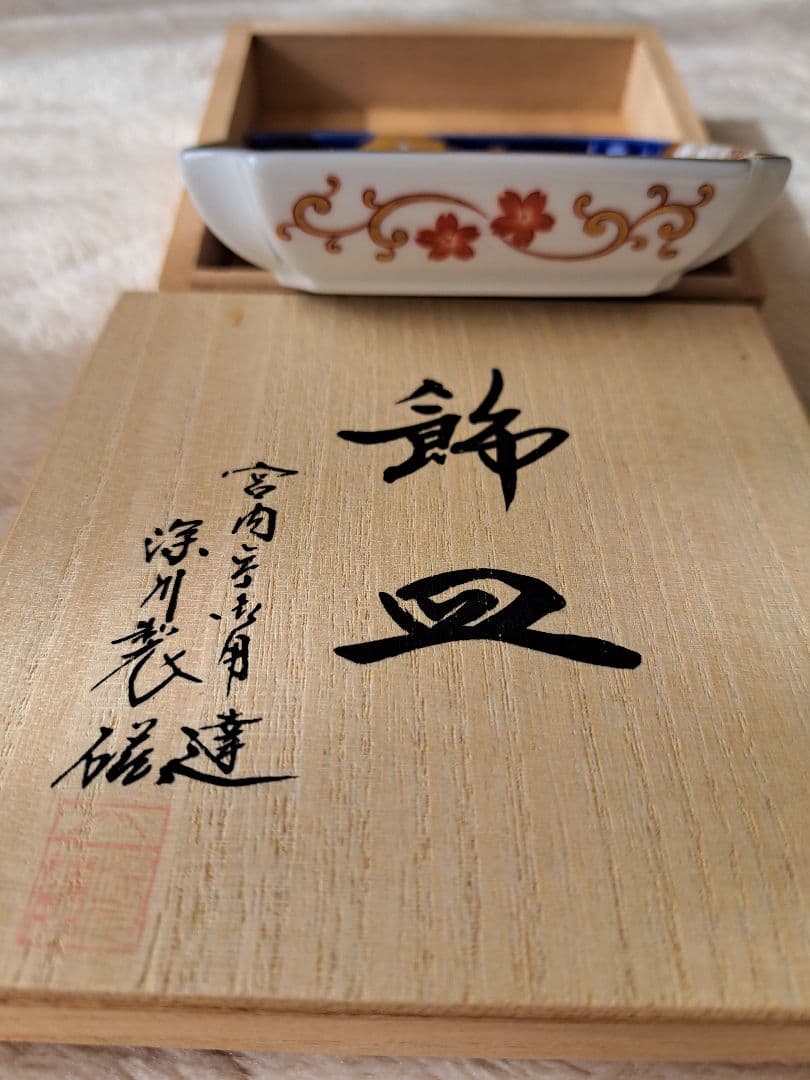 飾皿
宮内庁御用達
深川製磁